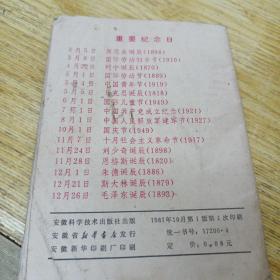 重要纪念日
3月5日 周恩来诞辰(1898)
3月8日 国际劳动妇女节(1910)
4月22日 列宁诞辰(1870)
5月1日 国际劳动节(1889)
5月4日 中国青年节(1919)
5月5日 马克思诞辰(1818)
6月1日 国际儿童节(1949)
7月1日 中国共产党成立纪念(1921)
8月1日 中国人民解放军建军节(1927)
10月1日 国庆节(1949)
11月7日 十月社会主义革命节(1917)
11月24日 刘少奇诞辰(1898)
11月28日 恩格斯诞辰(1820)
12月1日 朱德诞辰(1886)
12月21日 斯大林诞辰(1879)
12月26日 毛泽东诞辰(1893)
安徽科学技术出版社出版
安徽省新华书店发行
安徽新华印刷厂印刷
1981年10月第1版第1次印刷
统一书号：17200·4
定价：0.08元